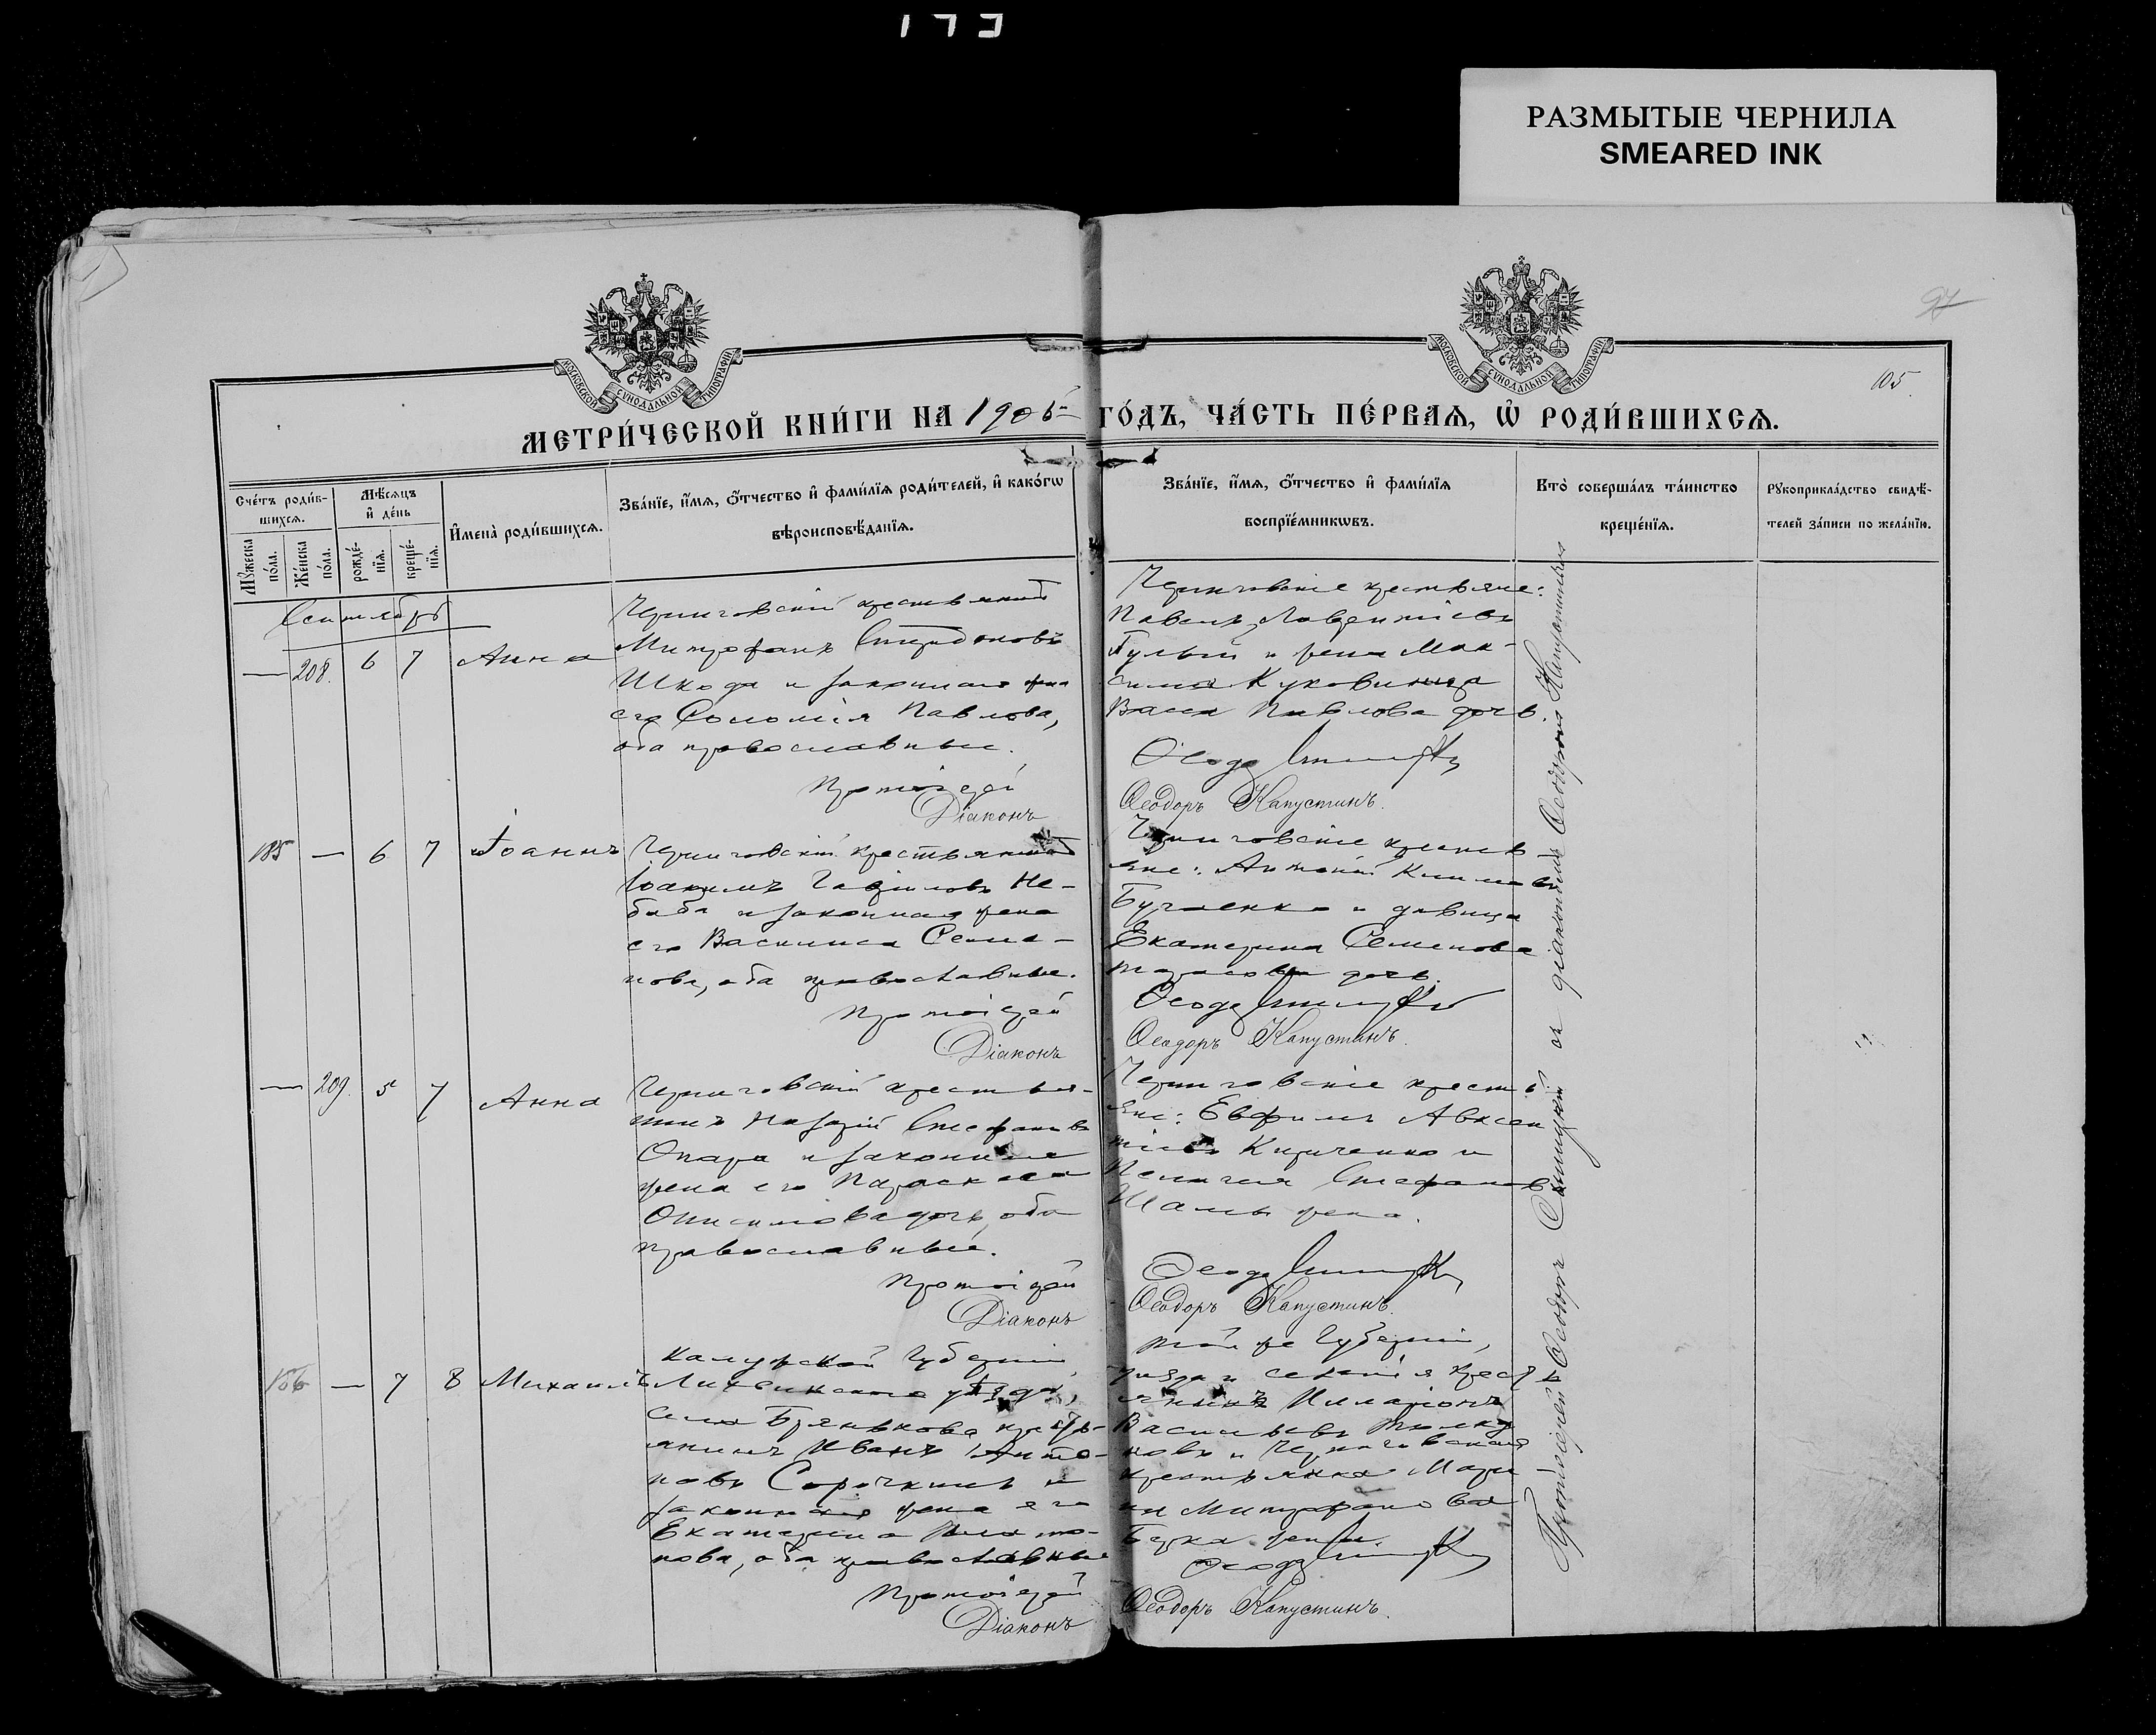 173
РАЗМЫТЫЕ ЧЕРНИЛА
SMEARED INK
97
105
МОСКОВСКОЙ СУНОДАЛЬНОЙ ТИПОГРАФІИ
МОСКОВСКОЙ СУНОДАЛЬНОЙ ТИПОГРАФІИ
МЕТРИ́ЧЕСКОЙ КНИ́ГИ НА 1905 ГО́ДЪ, ЧА́СТЬ ПЕ́РВАЯ, Ѡ҆ РОДИ́ВШИХСѦ.
Сче́тъ роди́в-
шихсѧ.
Мꙋ́жеска
по́ла.
Же́нска
по́ла.
Мѣ́сѧцъ
и҆ де́нь
рожде́-
нїѧ.
креще́-
нїѧ.
И҆мена̀ роди́вшихсѧ.
Зва́нїе, и҆́мѧ, ѻ҆́тчество и҆ фами́лїѧ роди́телей, и҆ како́гѡ
вѣроисповѣ́данїѧ.
Зва́нїе, и҆́мѧ, ѻ҆́тчество и҆ фами́лїѧ
воспрїе́мникѡвъ.
Кто̀ соверша́лъ та́инство
креще́нїѧ.
Рꙋкоприкла́дство свидѣ́-
телей за́писи по жела́нїю.
Сентябрь
— 208. 6 7 Анна
Черниговскій крестьянинъ
Митрофанъ Спиридоновъ
Шкода и законная жена
его Соломія Павлова,
оба православные.
Протоіерей
Діаконъ
Черниговскіе крестьяне:
Павелъ Лаврентіевъ
Гулый и жена Мак-
сима Куковинца
Васса Павлова дочь.
Ѳеодоръ Капустинъ.
185 — 6 7 Іоаннъ
Черниговскій крестьянинъ
Іоакимъ Гавріиловъ Не-
баба и законная жена
его Василиса Семе-
нова, оба православные.
Протоіерей
Діаконъ
Черниговскіе кресть-
яне: Антоній Климовъ
и девица
Екатерина Семенова
дочь.
Ѳеодоръ Капустинъ.
— 209. 5 7 Анна
Черниговскій крестья-
нинъ Назарій Стефановъ
Опара и законная
жена его Параскева
Онисимова дочь, оба
православные.
Протоіерей
Діаконъ
Черниговскіе кресть-
яне: Евфимъ Авксен
тіевъ Кириченко и
Пелагія Стефанов
жена.
Ѳеодоръ Капустинъ.
186 — 7 8 Михаилъ
Калужской Губерніи,
Лихвинскаго уѣзда,
села Брянкова кресть-
янинъ Иванъ Анто-
новъ Сорочкинъ и
законная жена его
Екатерина Плато-
нова, оба православные
Протоіерей
Діаконъ
той же Губерніи,
уѣзда и селенія кресть
янинъ Иларіонъ
Васильевъ
и Черниговская
крестьянка Мари
на Митрофанова
жена.
Ѳеодоръ Капустинъ.
Протоіерей Ѳеодоръ Синицкій съ діакономъ Ѳеодоромъ Капустинымъ